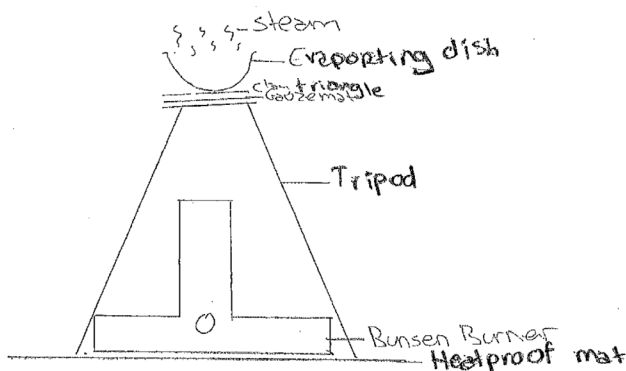 steam
Evaporting dish
Clay triangle
Gauze mat
Tripod
Bunsen Burner
Heatproof mat